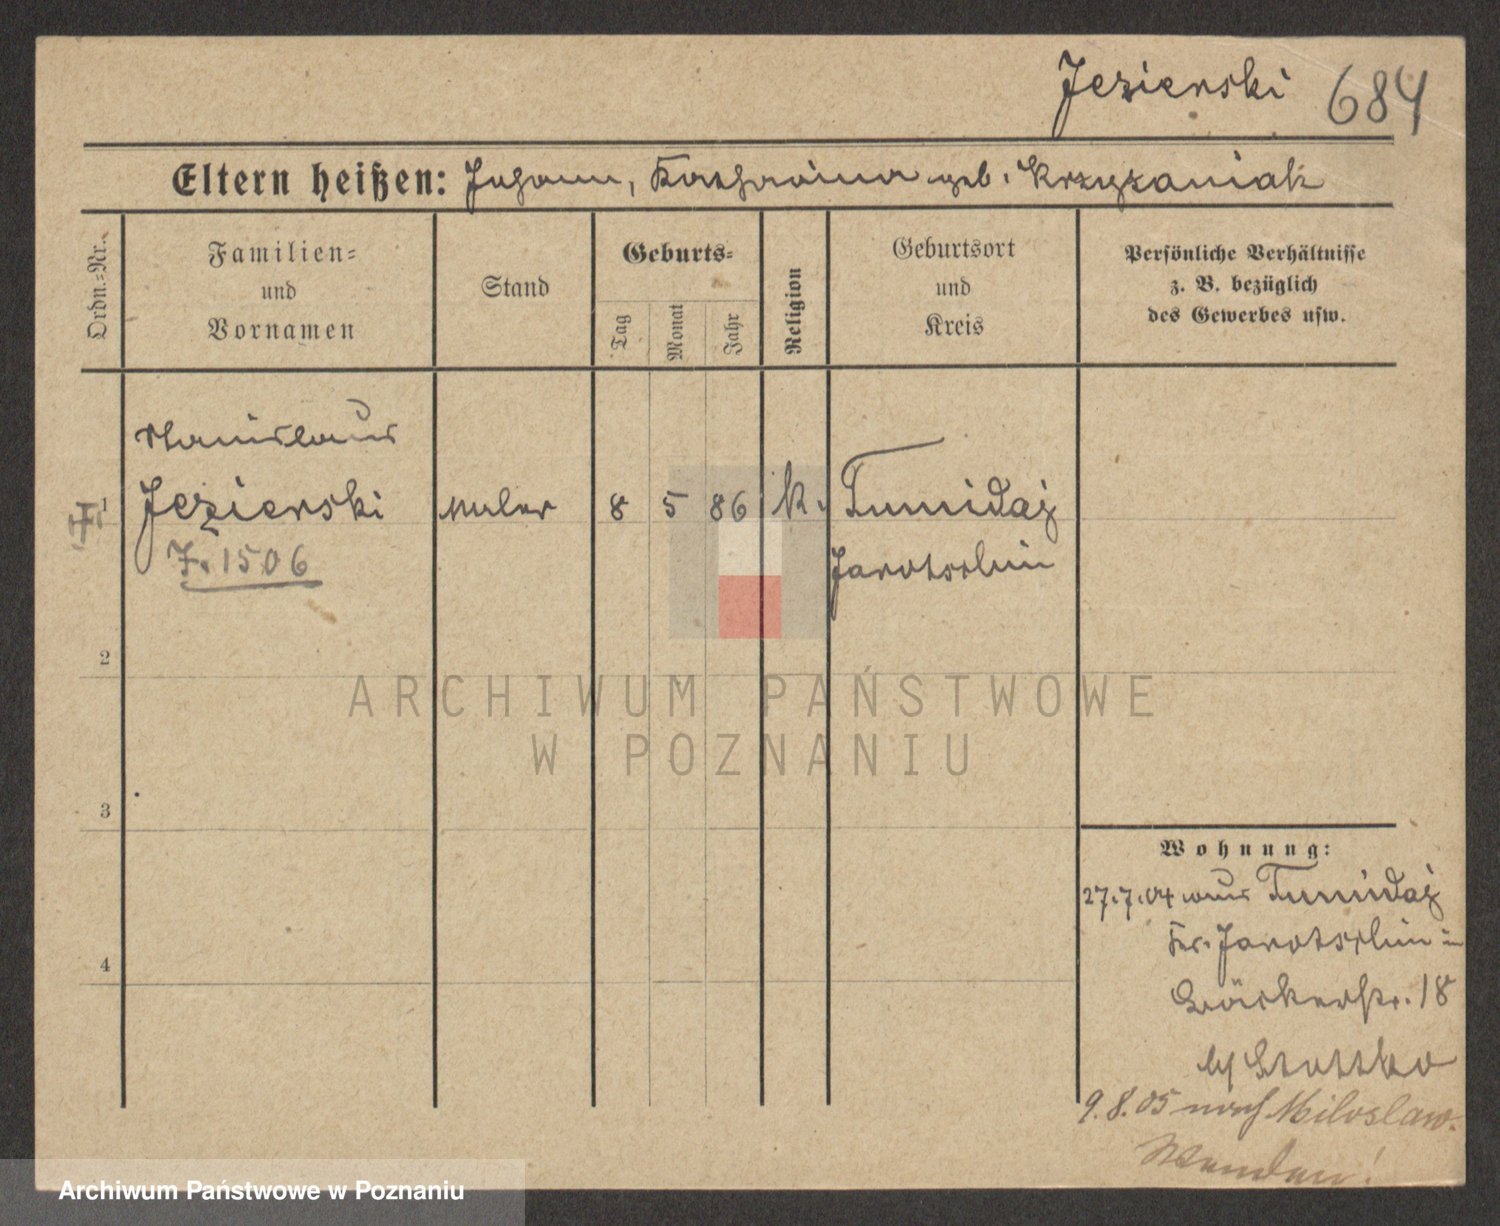 Jezierski 684
Eltern heißen: Johann, Katharina geb. Krzyzaniak
Ordn.-Nr.
Familien-
und
Vornamen
Stand
Geburts-
Tag
Monat
Jahr
Religion
Geburtsort
und
Kreis
Persönliche Verhältnisse
z. B. bezüglich
des Gewerbes usw.
1
Stanislaus
Jezierski
J. 1506
Maler
8
5
86
k.
Tumidaj
Jarotschin
2
3
4
Wohnung:
27.7.04 aus Tumidaj
Kr. Jarotschin in
Bäckerstr. 18
9.8.05 nach Miloslaw.
Wenden!
ARCHIWUM PAŃSTWOWE
W POZNANIU
Archiwum Państwowe w Poznaniu